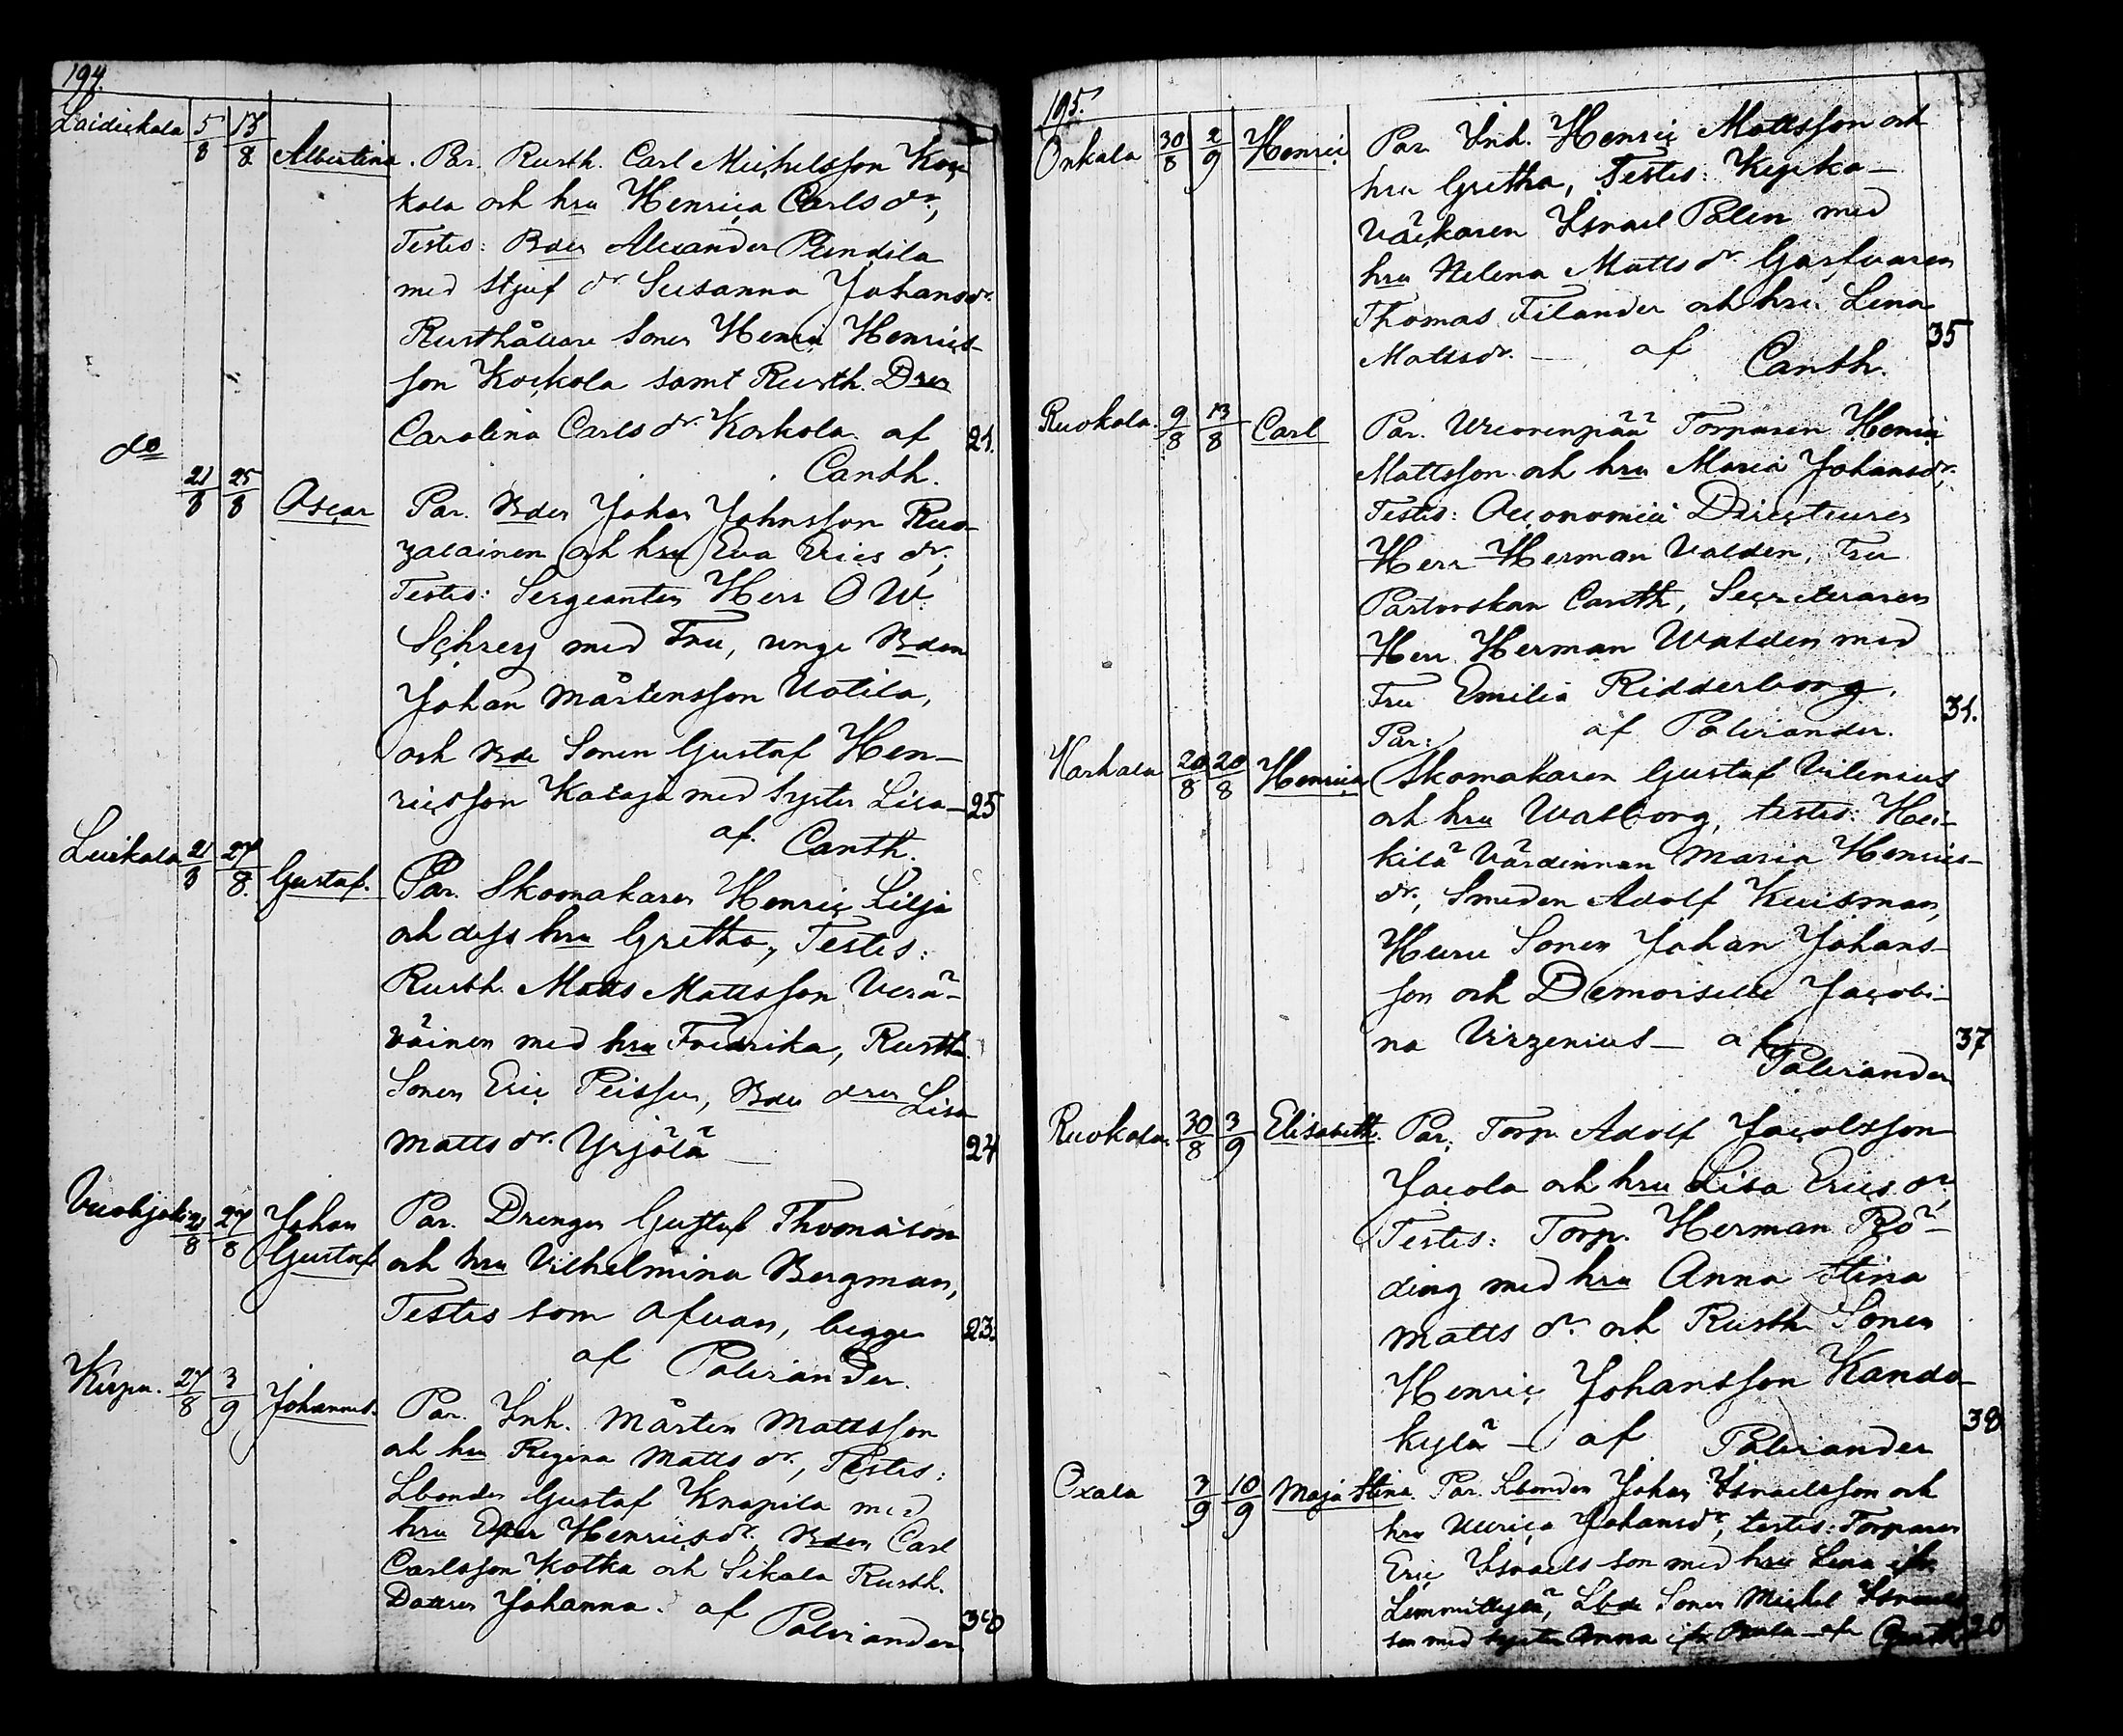 194.
Laidickala 5/8 13/8 Albertina. Par. Rusth. Carl Michelsson Koc-
kola och hru Henrica Carls dr,
Testes: Bden Alexander Pendila
med styf dr Susanna Johansdr.
Rusthållare Sonen Henric Henrics-
son Kockola samt Rusth. Dren
Carolina Carls dr. Korkola af 21.
Canth.
do 21/8 25/8 Oscar Par. Bden Johan Johnsson Ruo-
zalainen och hru Eva Erics dr,
Testes: Sergeanten Herr O W.
Schrey med Fru, unge Bden
Johan Mårtensson Uotila,
och Bde Sonen Gustaf Hen-
ricsson Kataja med Syster Lisa — 25
af Canth.
Luikala 21/8 27/8. Gustaf. Par. Skomakaren Henric Lilja
och dess hru Gretha, Testes:
Rusth. Matts Mattsson Verä-
väinen med hru Fredrika, Rusth.
Sonen Eric Peissu, Bde dren Lisa
Matts dr. Yrjölä — 24
Vuohjoki 21/8 27/8 Johan Gustaf Par. Drengen Gustaf Thomasson
och hru Vilhelmina Bergman,
Testes som ofvan, begge 23.
af Palviander.
Kirpu. 27/8 3/9 Johannes. Par. Inh. Mårten Mattsson
och hru Regina Matts dr., Testes:
Lbonden Gustaf Knapila med
hru Ester Henricsdr. Bden Carl
Carlsson Kotka och Sikala Rusth.
Dottren Johanna. af 30
Palviander.
195.
Onkala 30/8 2/9 Henric Par. Inh. Henric Mattsson och
hru Gretha, Testes: Kyrko-
väckaren Isracl Palen med
hru Helena Matts dr. Garfvaren
Thomas Filander och hru Lena
Mattsdr. — af 35
Canth.
Ruokola. 9/8 13/8 Carl Par. Vuorenpää Torparen Henric
Mattsson och hru Maria Johansdr,
Testes: Oeconomie Directeuren
Herr Herman Valden, Fru
Pastorskan Canth, Secreteraren
Herr Herman Walden med
Fru Emilia Ridderborg,
af Palviander. 31.
Harhala 20/8 20/8 Henrica Par: Skomakaren Gustaf Vilenius
och hru Walborg, testes: Hei-
kilä Värdinnan Maria Henrics-
dr, Smeden Adolf Kuisman,
Huru Sonen Johan Johans-
son och Demoiselle Jacobi-
na Virzenius — af 37
Palviander
Ruokola. 30/8 3/9 Elisabeth. Par. Torp. Adolf Jacobsson
Jacola och hru Lisa Erics dr
Testes: Torp. Herman Rö-
ding med hru Anna Stina
Matts dr. och Rusth. Sonen
Henric Johansson Kando-
kylä — af Palviander 38
Oxala 7/9 10/9 Maja Stina. Par. Lbonden Johan Israelsson och
hru Ulrica Johansdr, testes: Torparen
Eric Israels son med hru Lena ifr.
Lemmettylä, Lbde Sonen Michel Israels
son med syster Anna ifr Oxala — af Canth. 20